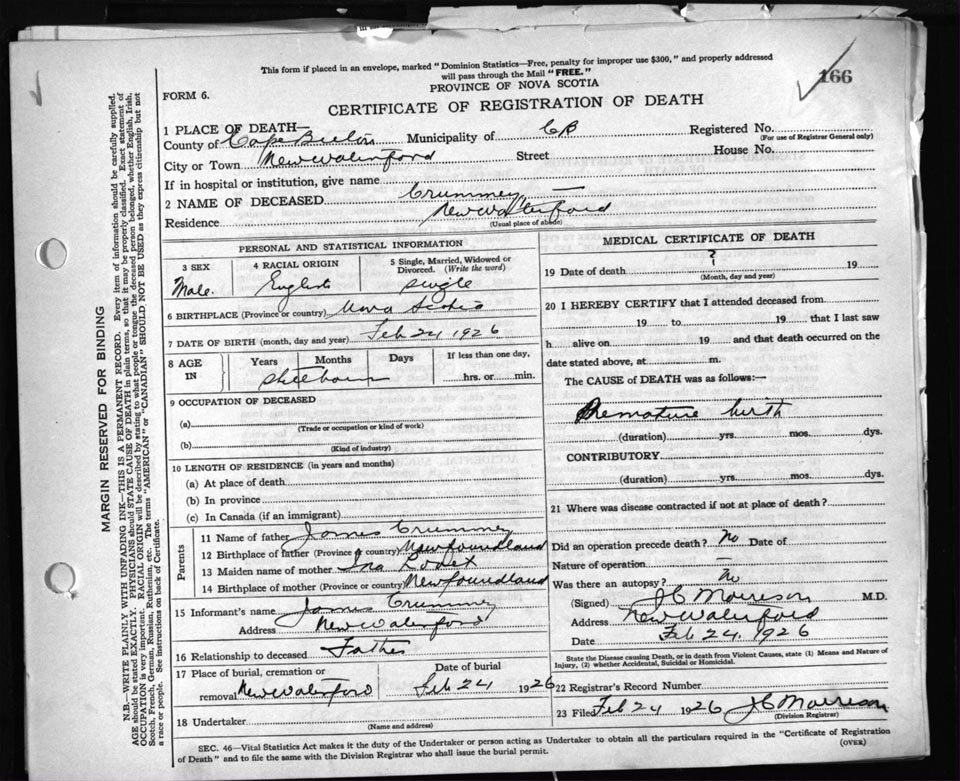 This form if placed in an envelope, marked "Dominion Statistics—Free, penalty for improper use $300," and properly addressed
will pass through the Mail "FREE."
166
PROVINCE OF NOVA SCOTIA
FORM 6.
CERTIFICATE OF REGISTRATION OF DEATH
1 PLACE OF DEATH—
County of Cape Breton Municipality of CB Registered No.
(For use of Registrar General only)
City or Town New Waterford Street House No.
If in hospital or institution, give name
2 NAME OF DECEASED Crummey
Residence New Waterford
(Usual place of abode)
PERSONAL AND STATISTICAL INFORMATION
3 SEX Male.
4 RACIAL ORIGIN English
5 Single, Married, Widowed or
Divorced. (Write the word)
single
6 BIRTHPLACE (Province or country) Nova Scotia
7 DATE OF BIRTH (month, day and year) Feb 24 1926
8 AGE IN Years Months Days If less than one day,
stillborn hrs. or min.
9 OCCUPATION OF DECEASED
(a)
(Trade or occupation or kind of work)
(b)
(Kind of industry)
10 LENGTH OF RESIDENCE (in years and months)
(a) At place of death
(b) In province
(c) In Canada (if an immigrant)
Parents
11 Name of father James Crummey
12 Birthplace of father (Province or country) Newfoundland
13 Maiden name of mother
14 Birthplace of mother (Province or country) Newfoundland
15 Informant's name James Crummey
Address New Waterford
16 Relationship to deceased Father
17 Place of burial, cremation or Date of burial
removal New Waterford Feb 24 1926
18 Undertaker
(Name and address)
MEDICAL CERTIFICATE OF DEATH
19 Date of death ? 19
(Month, day and year)
20 I HEREBY CERTIFY that I attended deceased from
19 to 19 that I last saw
h alive on 19 and that death occurred on the
date stated above, at m.
The CAUSE of DEATH was as follows:—
Premature birth
(duration) yrs. mos. dys.
CONTRIBUTORY
(duration) yrs. mos. dys.
21 Where was disease contracted if not at place of death?
Did an operation precede death? No Date of
Nature of operation
Was there an autopsy? No
(Signed) JC Morrison M.D.
Address New Waterford
Date Feb 24. 1926
State the Disease causing Death, or in death from Violent Causes, state (1) Means and Nature of
Injury, (2) whether Accidental, Suicidal or Homicidal.
22 Registrar's Record Number
23 Filed Feb 24 1926 JC Morrison
(Division Registrar)
SEC. 46—Vital Statistics Act makes it the duty of the Undertaker or person acting as Undertaker to obtain all the particulars required in the "Certificate of Registration
of Death" and to file the same with the Division Registrar who shall issue the burial permit.
(OVER)
MARGIN RESERVED FOR BINDING
N.B.—WRITE PLAINLY WITH UNFADING INK—THIS IS A PERMANENT RECORD. Every item of information should be carefully supplied.
AGE should be stated EXACTLY. PHYSICIANS should STATE CAUSE OF DEATH in plain terms, so that it may be properly classified. Exact statement of
OCCUPATION is very important. RACIAL ORIGIN will be described by stating to what people or tongue the deceased person belonged, whether English, Irish,
Scotch, French, German, Russian, Ruthenian, etc. The terms "AMERICAN" or "CANADIAN" SHOULD NOT BE USED as they express citizenship but not
a race or people. See instructions on back of Certificate.